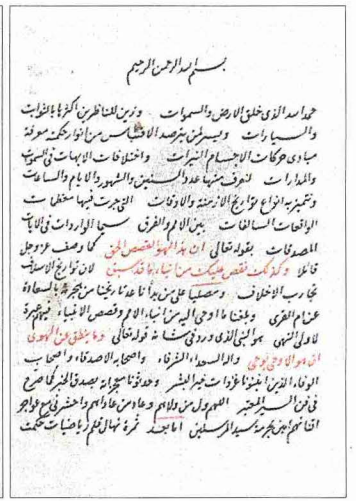 بسم الله الرحمن الرحيم
حمد الله الذى خلق الارض والسموات وزين للناظرين اكثرها بالثوابت
والسيارات ويسر لمن يترصد الاقتباس من انوار حكمته معرفة
مبادى حركات الاجسام النيرات واختلافات الابهات فى السموت
والمدارات لنعرف منها عدد السنين والشهور والايام والساعات
ونتميز به انواع تواريخ الازمنة والاوقات التى جرت فيها معظمات
الواقعات السالفات بين الامم والفرق سيما الواردات فى الايات
المصدقات بقوله تعالى ان هذا لهو القصص الحق كما وصف عز وجل
قائلا وكذلك نقص عليك من انباء ما قد سبق لان تواريخ الاسلاف
تجارب الاخلاف ومصليا على من بدأنا عد تاريخنا من هجرته بالسعادة
عن ام القرى وبلغنا ما اوحى اليه من انباء الامم وقصص الانبياء فيهم عبرة
لاولى النهى هو النبى الذى ورد فى شانه قوله تعالى وما ينطق عن الهوى
ان هو الا وحى يوحى واله السعداء الشرفاء واصحابه الاصدقاء واصحاب
الوفاء الذين غزوات خير البشر وحدثونا بصدق الخبر كما صرح
فى فن السير المعتبر اللهم وال من والاهم وعاد من عاداهم واحشرنى مع
امين بحرمة سيد المرسلين اما بعد ثمرة نهال قلم رياضيات حكمت